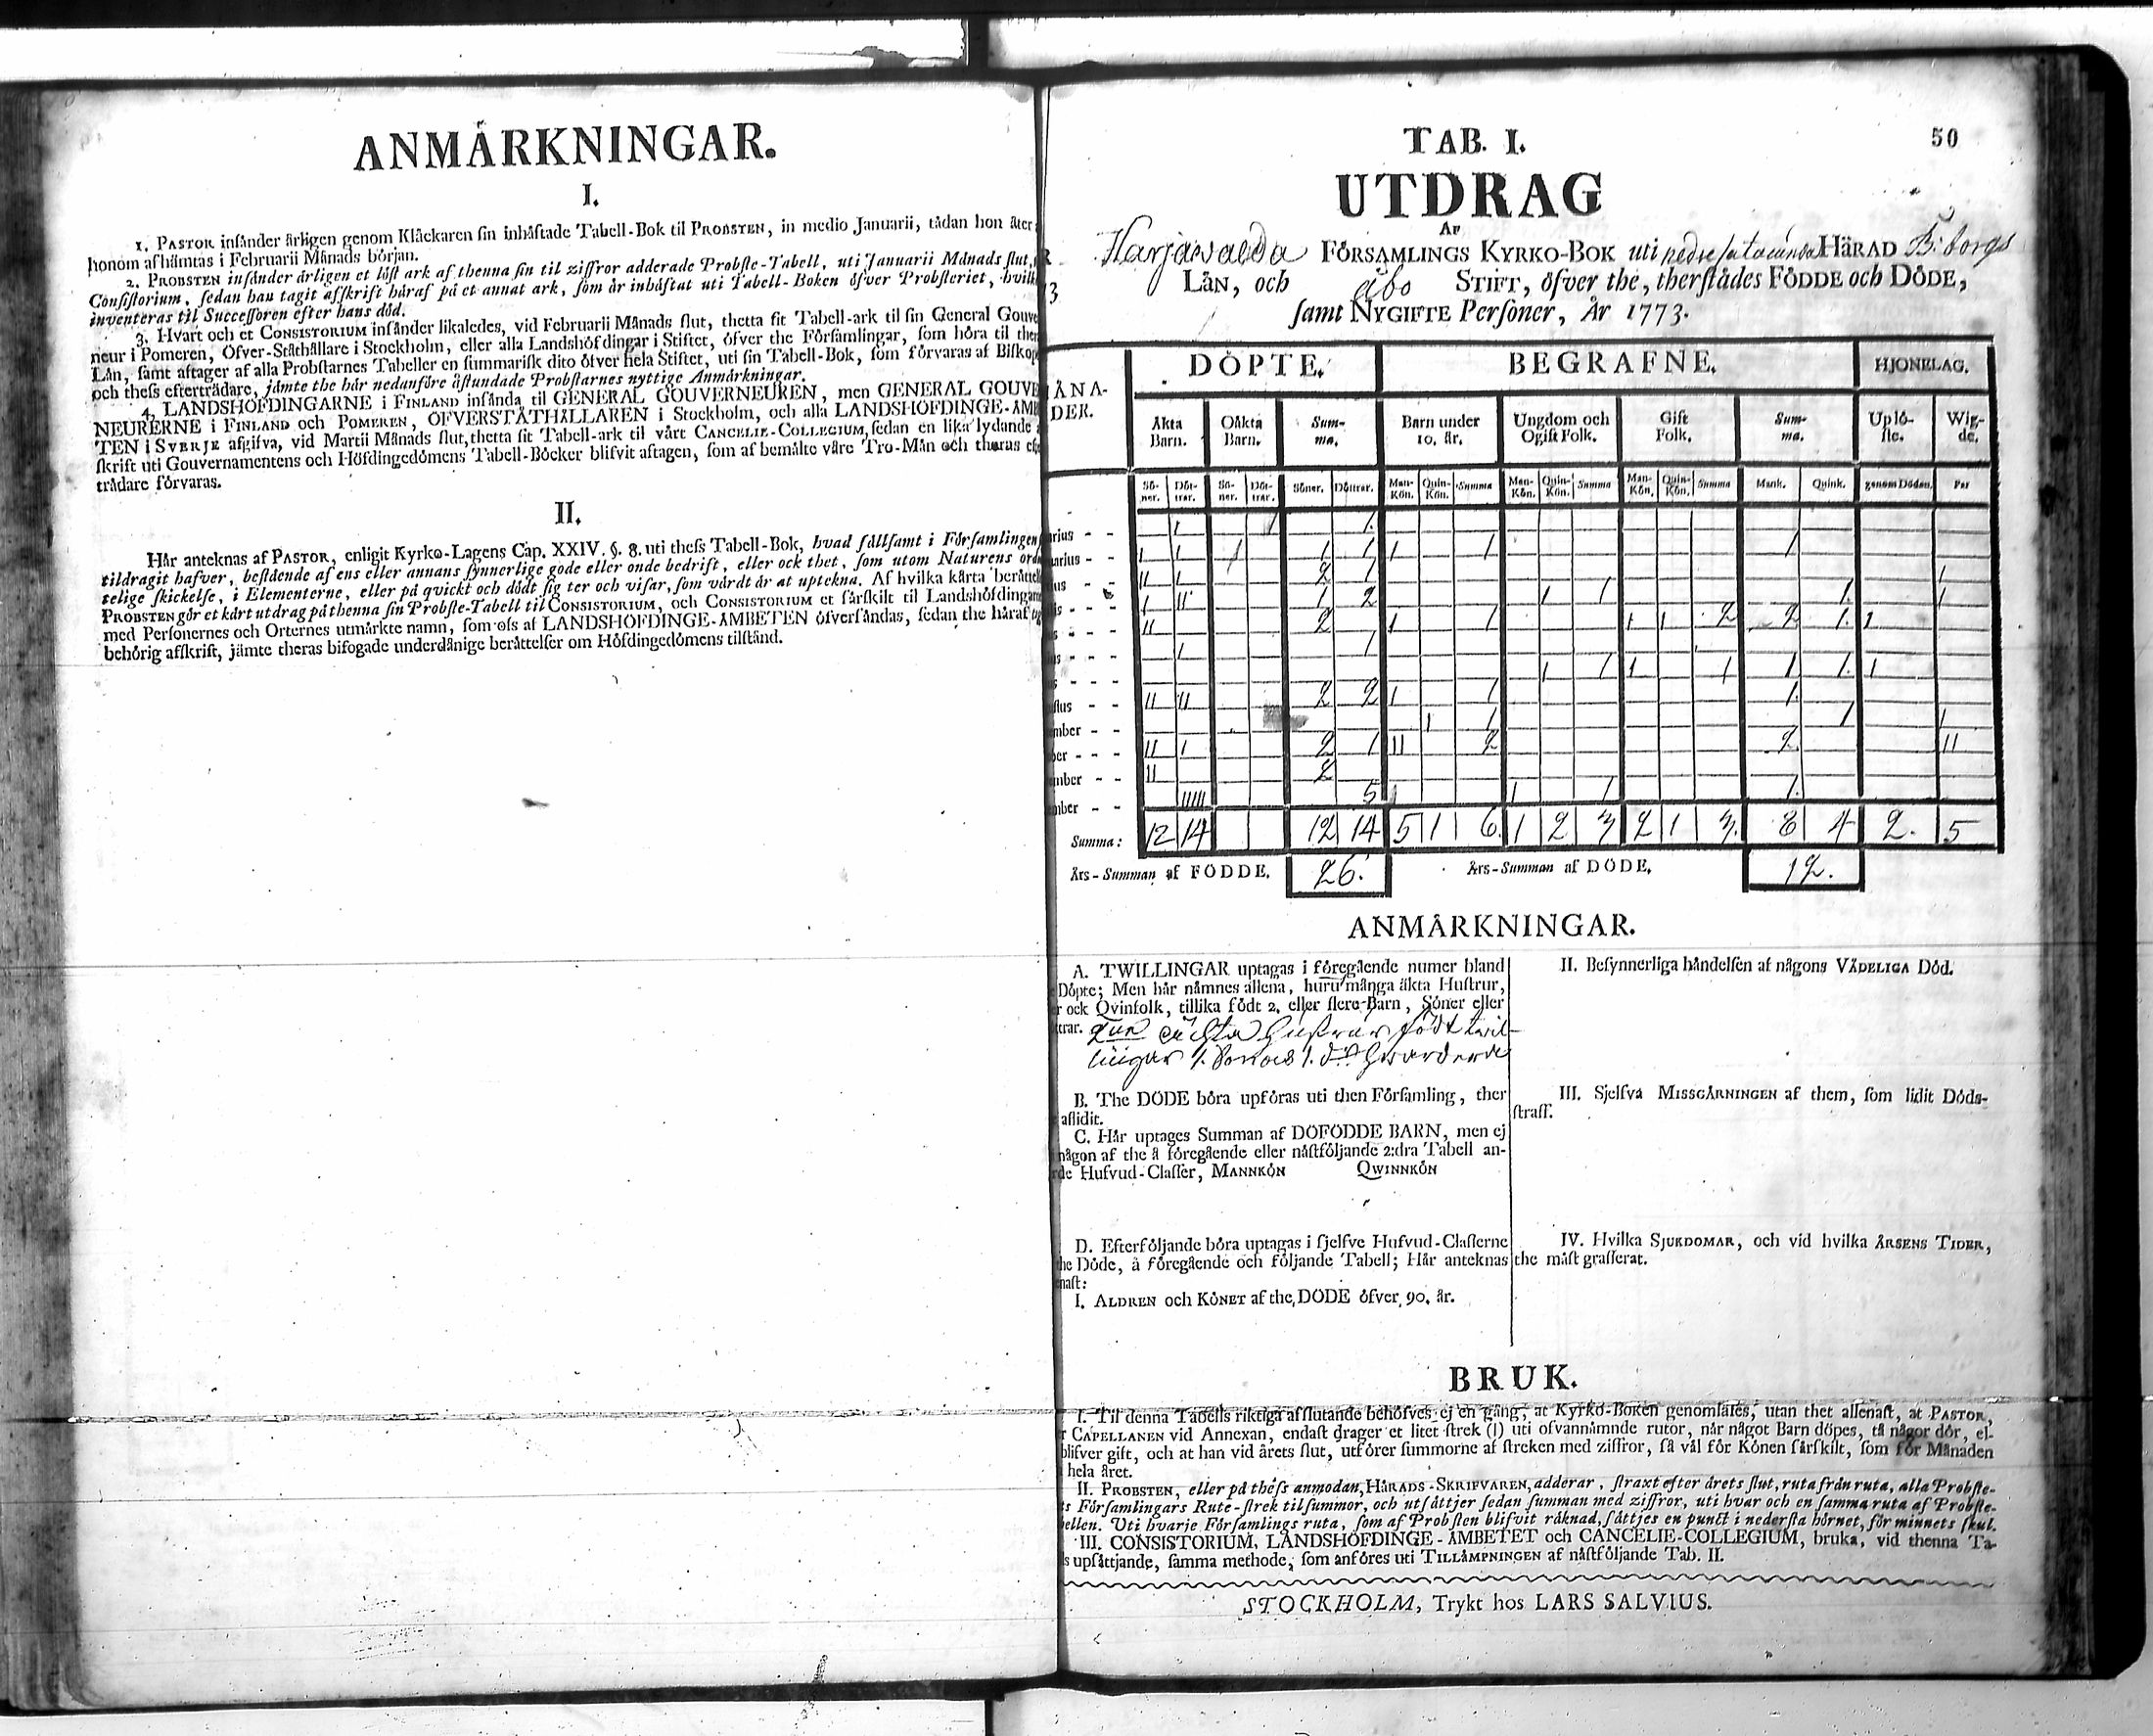 ANMÄRKNINGAR.
I.
1. PASTOR insänder årligen genom Kläckaren sin inhäftade Tabell-Bok til PROBSTEN, in medio Januarii, tådan hon åter
honom afhämtas i Februarii Månads början.
2. PROBSTEN insänder årligen et löst ark af thenna sin til ziffror adderade Probste-Tabell, uti Januarii Månads slut,
Consistorium, sedan han tagit afskrift håraf på et annat ark, som är inhäftat uti Tabell-Boken öfver Probsteriet,
inventeras til Successoren efter hans död.
3. Hvart och et CONSISTORIUM insänder likaledes, vid Februarii Månads slut, thetta sit Tabell-ark til sin General Gouve
neur i Pomeren, Öfver-Ståthållare i Stockholm, eller alla Landshöfdingar i Stiftet, öfver the Församlingar, som höra til
Län, samt aftager af alla Probstarnes Tabeller en summarisk dito öfver hela Stiftet, uti sin Tabell-Bok, som förvaras af Bisko
och thess efterträdare, jämte the här nedanföre åstundade Probstarnes nyttige Anmärkningar.
4. LANDSHÖFDINGARNE i FINLAND insända til GENERAL GOUVERNEUREN, men GENERAL GOUVE
NEURERNE i FINLAND och POMEREN, ÖFVERSTÅTHÅLLAREN i Stockholm, och alla LANDSHÖFDINGE-ÄMB
TEN i SVERJE afgifva, vid Martii Månads slut, thetta sit Tabell-ark til vårt CANCELIE-COLLEGIUM, sedan en lika lydande
skrift uti Gouvernamentens och Höfdingedömens Tabell-Böcker blifvit aftagen, som af bemälte våre Tro-Män och theras
trädare förvaras.
II.
Här anteknas af PASTOR, enligit Kyrko-Lagens Cap. XXIV. §. 8. uti thess Tabell-Bok, hvad sällsamt i Församlingen
tildragit hafver, bestående af ens eller annans synnerlige gode eller onde bedrift, eller ock thet, som utom Naturens
telige skickelse, i Elementerne, eller på qvickt och dödt sig ter och visar, som värdt är at uptekna. Af hvilka kårta
PROBSTEN gör et kårt utdrag på thenna sin Probste-Tabell til CONSISTORIUM, och CONSISTORIUM et särskilt til Landshöfdingar
med Personernes och Orternes utmärkte namn, som oss af LANDSHÖFDINGE-ÄMBETEN öfversändas, sedan the häraf
behörig afskrift, jämte theras bifogade underdånige berättelser om Höfdingedömens tilstånd.
50
TAB. I.
UTDRAG
AF
Harjawalda FÖRSAMLINGS KYRKO-BOK uti nedre satacunda HÄRAD B:borgs
LÄN, och Åbo STIFT, öfver the, therstädes FÖDDE och DÖDE,
samt NYGIFTE Personer, År 1773.
ÅNA-
DER.
DÖPTE. BEGRAFNE. HJONELAG.
Äkta Barn. Oäkta Barn. Sum-ma. Barn under 10. år. Ungdom och Ogift Folk. Gift Folk. Sum-ma. Uplö-ste. Wig-de.
Sö-ner. Döt-trar. Sö-ner. Döt-trar. Söner. Döttrar. Man-Kön. Quin-Kön. Summa Man-Kön. Quin-Kön. Summa Man-Kön. Quin-Kön. Summa Mank. Quink. genom Döden. Par
rius - - 1 1.
uarius - - 1 1 1 1 1 1 1
us - - 11 1 2 1 1
is - - - 1 11 1 2 1 1 1. 1
s - - - 11 2 1 1 1 1 2 2 1. 1
us - - - 1 1
s - - - 1 1 1 1 1 1. 1
stus - - 11 11 2 2 1 1 1.
mber - - 1 1 1 1
ber - - - 11 1 2 1 11 2 2 11
ember - - 11 2
mber - - 11111 5 1 1 1.
Summa: 12 14 12 14 5 1 6. 1 2 3 2 1 3. 8 4 2. 5
Års-Summan af FÖDDE. 26. Års-Summan af DÖDE. 12.
ANMÄRKNINGAR.
A. TWILLINGAR uptagas i föregående numer bland
Döpte; Men här nämnes allena, huru många äkta Hustrur,
r ock Qvinfolk, tillika födt 2. eller flere Barn, Söner eller
trar. äckta Hustrur födt twil-
lingar
B. The DÖDE böra upföras uti then Församling, ther
aflidit.
C. Här uptages Summan af DÖFÖDDE BARN, men ej
någon af the å föregående eller nästföljande 2:dra Tabell an-
de Hufvud-Classer, MANNKÖN QWINNKÖN
D. Efterföljande böra uptagas i sjelfve Hufvud-Classerne
the Döde, å föregående och följande Tabell; Här anteknas
nast:
I. ÅLDREN och KÖNET af the DÖDE öfver 90. år.
II. Besynnerliga händelsen af någons VÅDELIGA Död.
III. Sjelfva MISSGÄRNINGEN af them, som lidit Döds-
straff.
IV. Hvilka SJUKDOMAR, och vid hvilka ÅRSENS TIDER,
the mäst grasserat.
BRUK.
I. Til denna Tabells riktiga afslutande behöfves ej en gång, at Kyrko-Boken genomläses, utan thet allenast, at PASTOR,
r CAPELLANEN vid Annexan, endast drager et litet strek (|) uti ofvannämnde rutor, når något Barn döpes, tå någor dör, el-
blifver gift, och at han vid årets slut, utförer summorne af streken med ziffror, så väl för Könen särskilt, som för Månaden
hela året.
II. PROBSTEN, eller på thess anmodan, HÄRADS-SKRIFVAREN, adderar, straxt efter årets slut, ruta från ruta, alla Probste-
s Församlingars Rute-strek til summor, och utsättjer sedan summan med ziffror, uti hvar och en samma ruta af Probste-
ellen. Uti hvarje Församlings ruta, som af Probsten blifvit räknad, sättjes en punct i nedersta hörnet, för minnets skul.
III. CONSISTORIUM, LANDSHÖFDINGE-ÄMBETET och CANCELIE-COLLEGIUM, bruka, vid thenna Ta-
s upsättjande, samma methode, som anföres uti TILLÄMPNINGEN af nästföljande Tab. II.
STOCKHOLM, Trykt hos LARS SALVIUS.